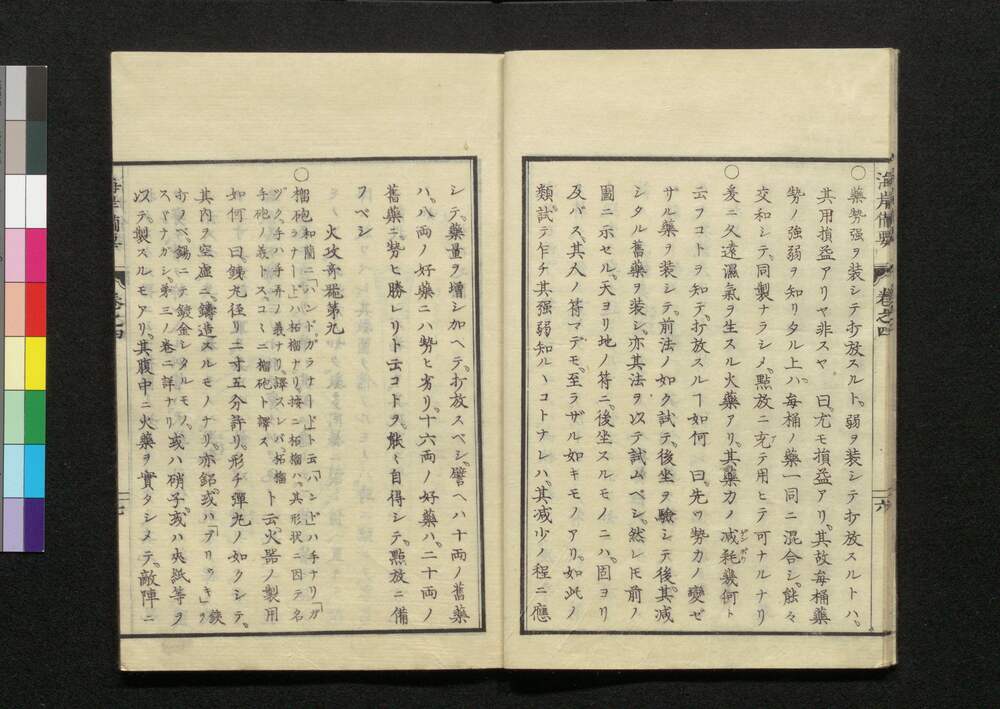 海岸備要 卷之四 六
〇藥勢强ヲ装シテ打放スルト。弱ヲ装シテ打放スルトハ。
其用損益アリヤ非スヤ 曰。尤モ損益アリ。其故每桶藥
勢ノ強弱ヲ知リタル上ハ。每桶ノ藥一同ニ混合シ。能々
交和シテ。同製ナラシメ。點放ニ充テ用ヒテ可ナルナリ
〇爰ニ久遠濕氣ヲ生スル火藥アリ。其藥力ノ減耗幾何ト
云フコトヲ知テ。打放スルヿ如何 曰。先ツ勢力ノ變ゼ
サル藥ヲ装シテ。前法ノ如ク試テ。後坐ヲ驗シテ後。其減
シタル舊藥ヲ装シ。亦其法ヲ以テ試ムベシ。然レ𪜈前ノ
圖ニ示セル。天ヨリ地ノ符ニ。後坐スルモノニハ。固ヨリ
及バス。其人ノ符マデモ。至ラザル如キモノアリ。如此ノ
類試テ乍チ其强弱知ルヽコトナレハ。其减少ノ程ニ應
シテ。藥量ヲ增シ加ヘテ。打放スベシ。譬ヘハ十両ノ舊藥
ハ。八両ノ好藥ニハ勢ヒ劣リ。十六両ノ好藥ハ。二十両ノ
舊藥ニ。勢ヒ勝レリト云コトヲ。能々自得シテ。點放ニ備
フベシ
火攻奇器第九
〇榴砲 和蘭ニ「ハンド」ガラナート」ト云「ハンド」ハ手ナリ「ガ
ラナート」ハ柘榴ナリ。按ニ柘榴ハ。其形状ニ因テ名
ヅク。手ハ手弄ノ義ナリ。譯スレバ。柘榴
手砲ノ義トス。コヽニ榴砲ト譯ス ト云。火器ノ製用
如何 曰。銕丸徑リ二寸五分許リ。形チ彈丸ノ如クシテ。
其内ヲ空虚ニ。鑄造スルモノナリ。亦鉛。或ハ「ブリッキ」銕ヲ
打ノベ。錫ニテ鍍金シタルモノ。或ハ硝子。或ハ夾紙等ヲ
以テ製スルモアリ。其腹中ニ火藥ヲ實タシメテ。敵陣ニ
海岸備要 卷之四 七